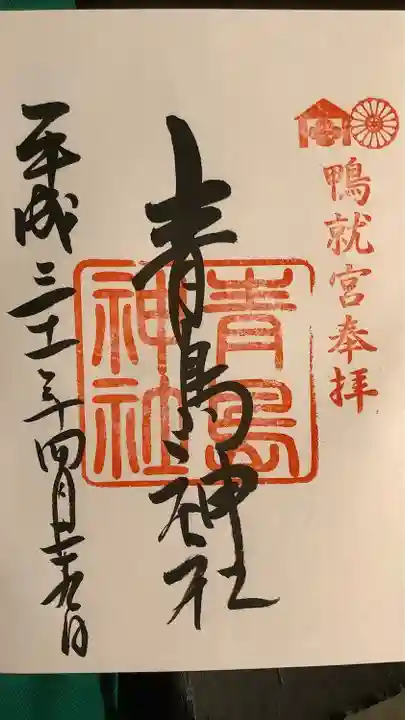 鴨就宮奉拝
青島神社
青島神社
平成三十一年四月二十九日